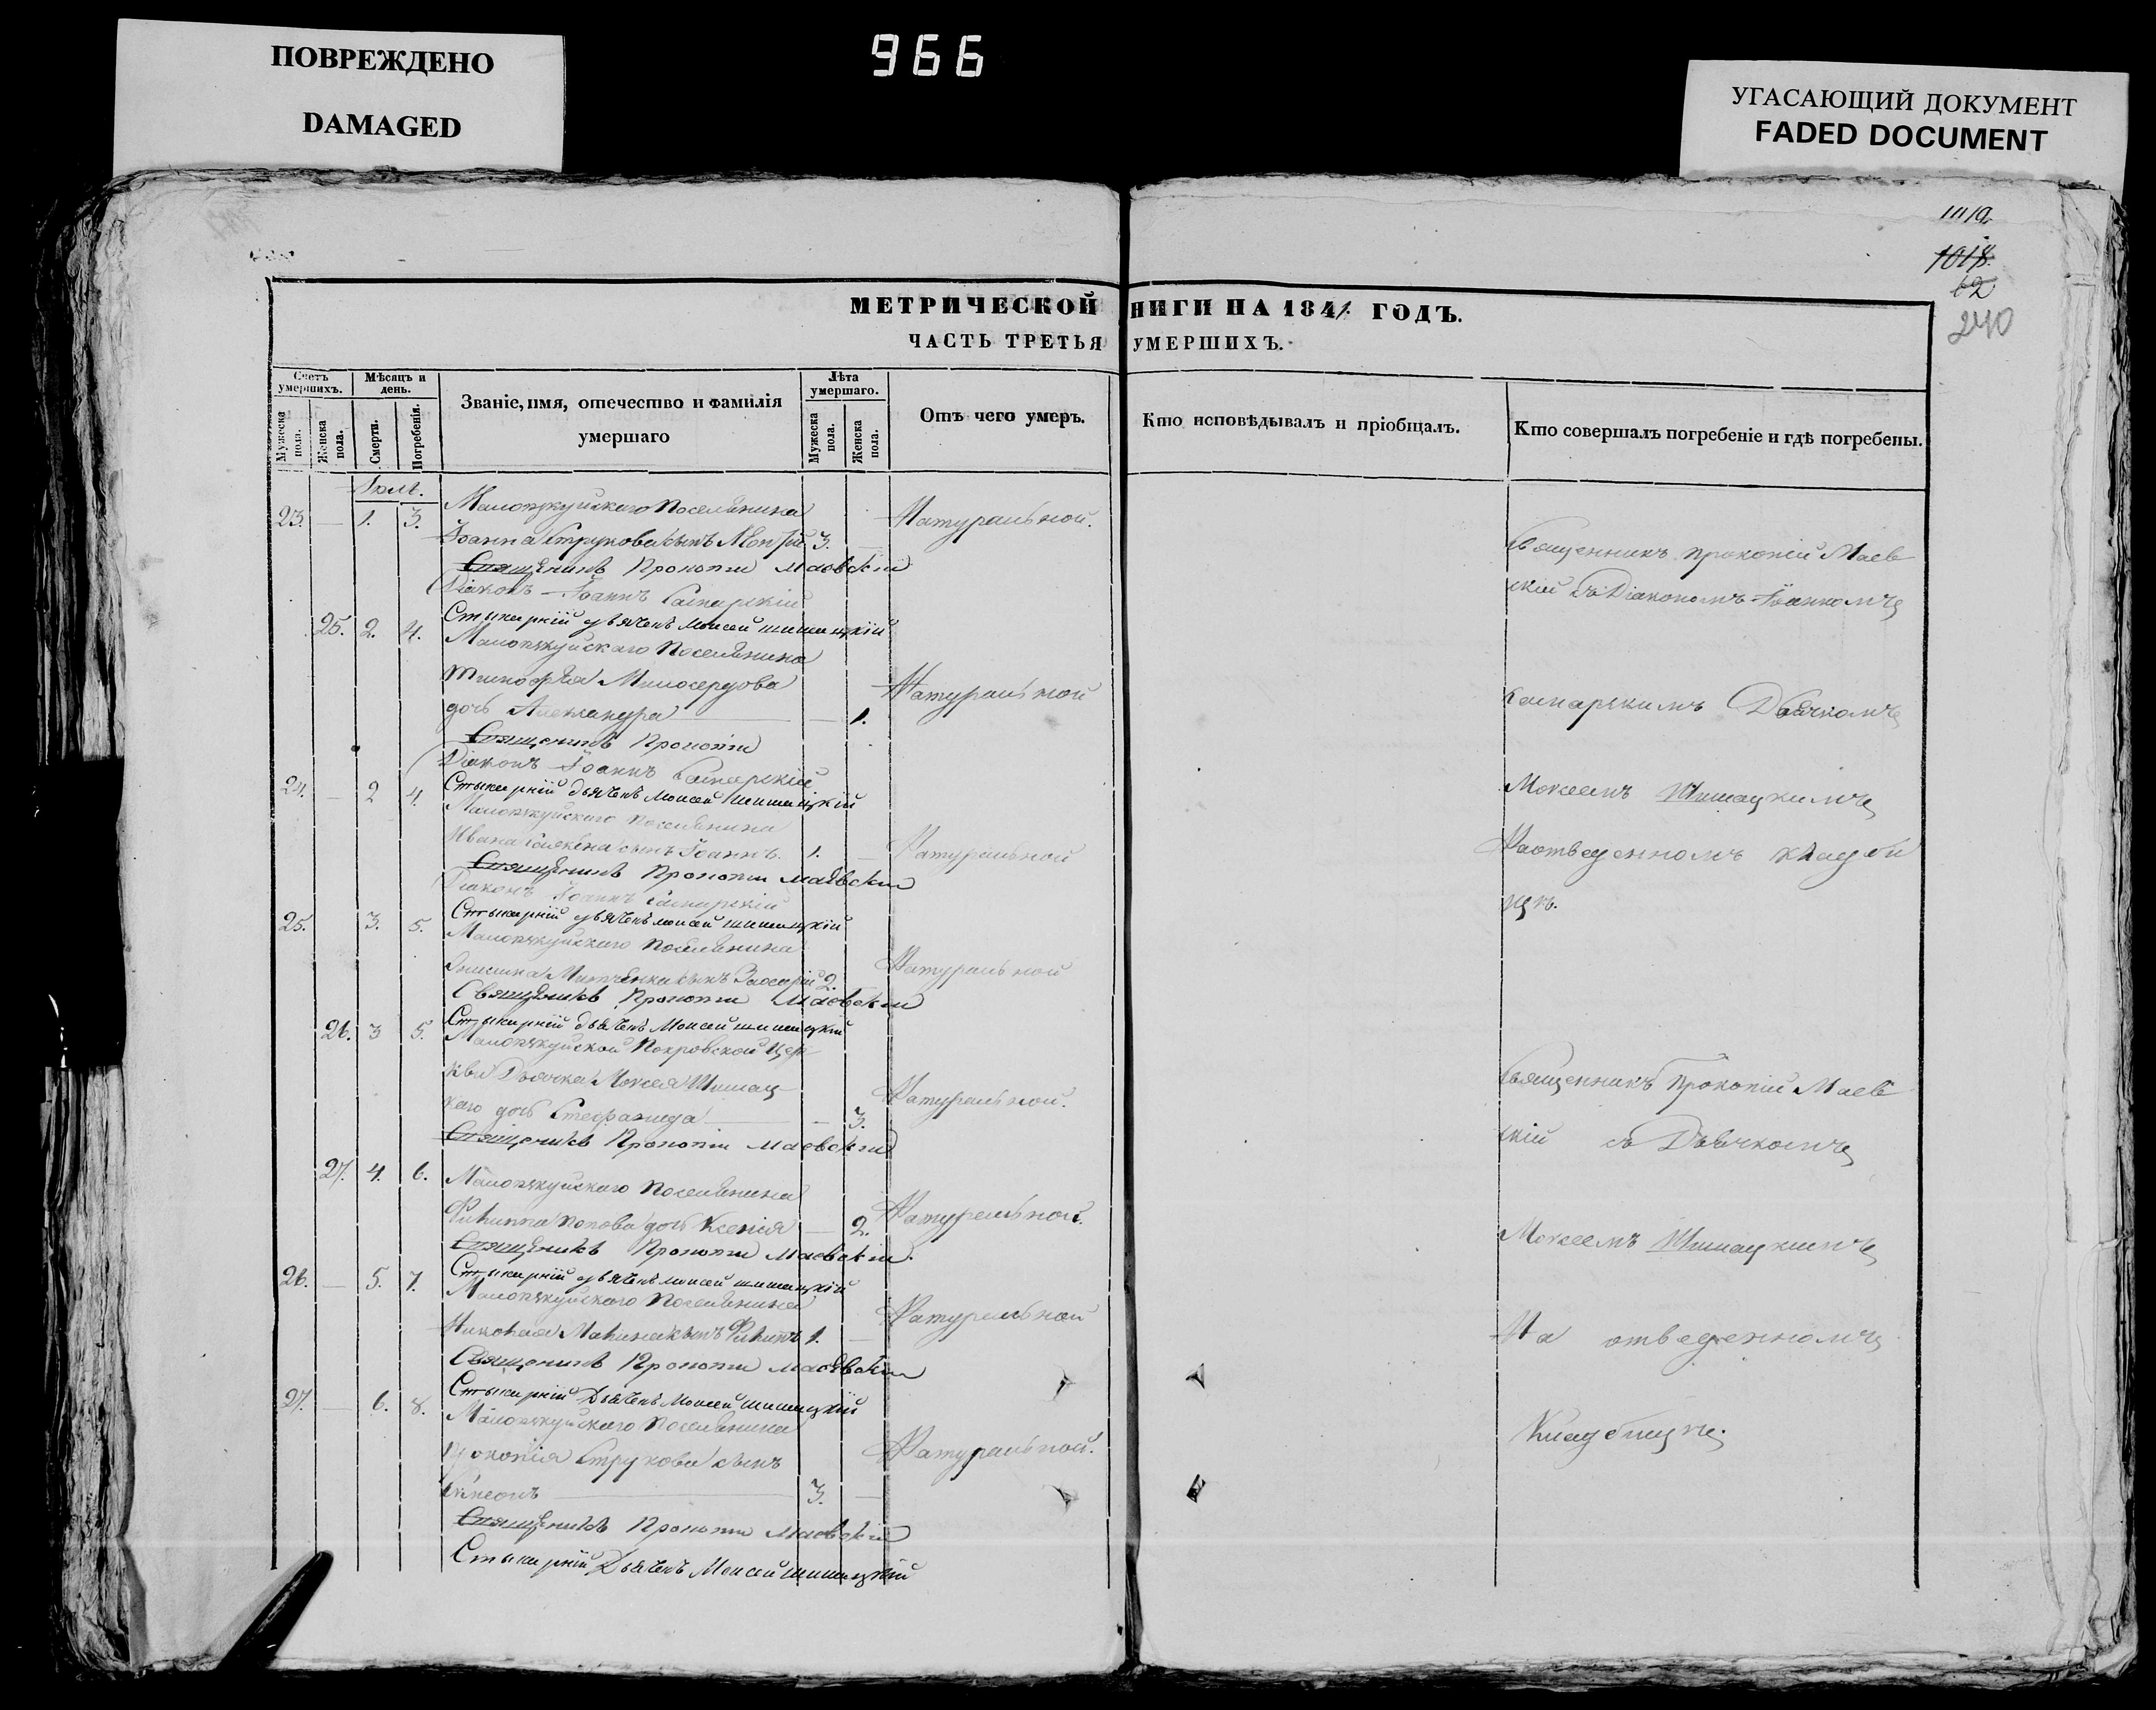 ПОВРЕЖДЕНО
DAMAGED
966
УГАСАЮЩИЙ ДОКУМЕНТ
FADED DOCUMENT
1018.
62
240
МЕТРИЧЕСКОЙ НИГИ НА 1841 ГОДЪ.
ЧАСТЬ ТРЕТЬЯ УМЕРШИХЪ.
Счетъ умершихъ.
Мужеска пола.
Женска пола.
Мѣсяцъ и день.
Смерти.
Погребенія.
Званіе, имя, отечество и фамилія умершаго
Лѣта умершаго.
Мужеска пола.
Женска пола.
Отъ чего умеръ.
Кто исповѣдывалъ и пріобщалъ.
Кто совершалъ погребеніе и гдѣ погребены.
23. — 1. 3. Поселянина Натуральной.
Іоанна Струкова сынъ 3. —
Священникъ Прокопій Маевскій
Діаконъ Іоаннъ
25. 2. 4. Стихарній дьячекъ Моисей Шишацкій
Поселянина
Тимофея Милосердова Натуральной
дочь Александра — 1.
Священникъ Прокопій
Діаконъ Іоаннъ
24. — 2 4. Стихарній дьячекъ Моисей Шишацкій
Поселянина
Ивана сынъ Іоаннъ. 1. — Натуральной
Священникъ Прокопій Маевскій
Діаконъ Іоаннъ
25. 3. 5. Стихарній дьячекъ Моисей Шишацкій
Поселянина Натуральной
сынъ Захарій 2.
Священникъ Прокопій Маевскій
26. 3 5. Стихарній дьячекъ Моисей Шишацкій
Покровской Цер
кви Дьячка Моисея Шишац Натуральной.
каго дочь Стефанида — 3.
Священникъ Прокопій Маевскій
27. 4. 6. Поселянина
Филиппа Попова дочь Ксенія — 2. Натуральной.
Священникъ Прокопій Маевскій.
26. — 5. 7. Стихарній дьячекъ Моисей Шишацкій
Поселянина Натуральной
Николая сынъ Филипъ 1. —
Священникъ Прокопій Маевскій
27. — 6. 8. Стихарній Дьячекъ Моисей Шишацкій
Поселянина
Прокопія Струкова сынъ Натуральной.
3. —
Священникъ Прокопій Маевскій
Стихарній Дьячекъ Моисей Шишацкій
Священникъ Прокопій Маев
скій съ Діакономъ Іоанномъ
Дьячкомъ
Моисеемъ Шишацкимъ
На отведенномъ кладби
щѣ.
Священникъ Прокопій Маев
скій съ Дьячкомъ
Моисеемъ Шишацкимъ
На отведенномъ
Кладбищѣ.